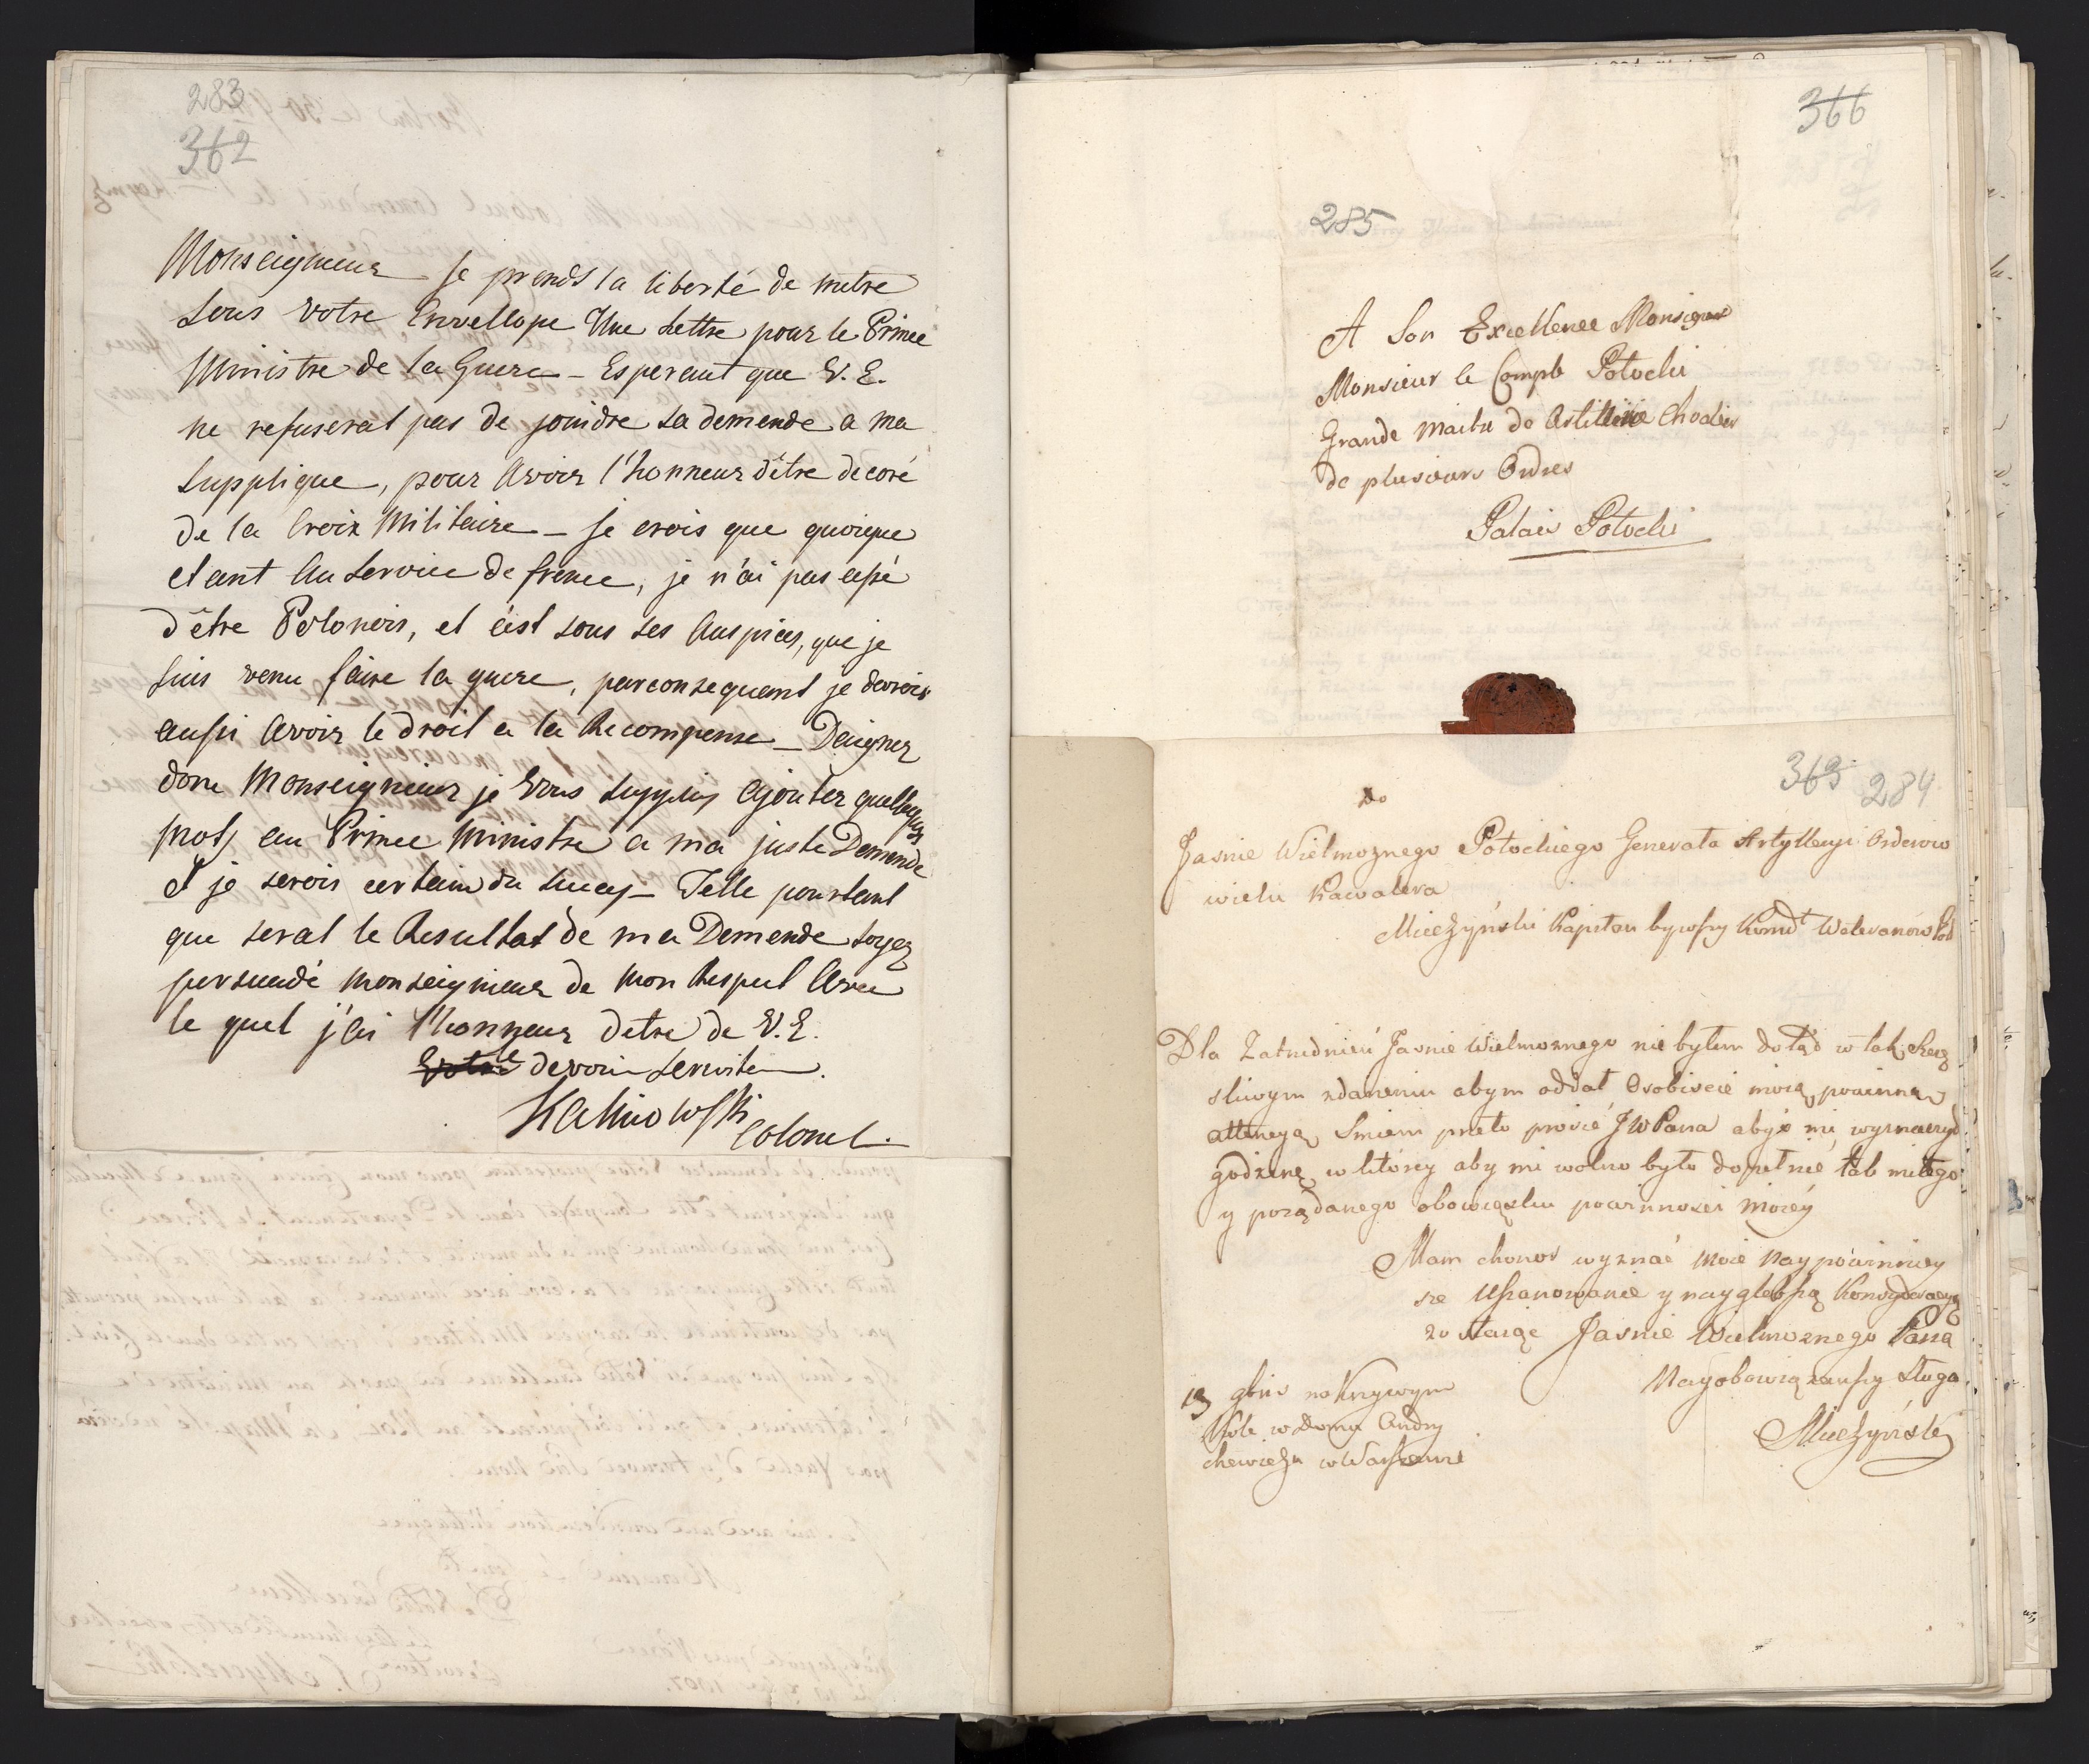 283
362
Monseigneur je prends la liberté de mettre
sous votre Envellope Une Lettre pour le Prince
Ministre de la Guere – Esperant que V. E.
ne refuserat pas de joindre sa demende a ma
supplique, pour Avoir l'honneur d'être decoré
de la Croix Militaire – je crois que quoique
etant Au Service de france, je n'ai pas cessé
d'être Polonois, et c'est sous ses Auspices, que je
suis venu faire la guere, parconsequent je devrois
aussi Avoir le droit a la Recompense – Daignez
donc Monseigneur je Vous supplie Ajouter quellques
mots au Prince Ministre a ma juste Demende
et je serois certain du succes – Telle pourtant
que serat le Resultat de ma Demende soyez
persuadé Monseigneur de Mon Respect Avec
le quel j'ai l'honneur d'etre de V. E.
devoué serviteur.
Kalinowski
Colonel.
366
285
A Son Excellence Monsigneur
Monsieur le Compte Potocki
Grande Maitre de Artillerie Chvalier
de plusieurs Ordres
Palais Potocki
365 284
Do
Jasnie Wielmoznego Potockiego Generała Artylleryi Orderow
wielu Kawalera
Mieczyński Kapitan bywszy Komdt Weteranów Pol
Dla Zatrudnień Jasnie Wielmoznego nie byłem dotąd w tak szczę
sliwym zdarzeniu abym oddał Osobiscie moią powinną
attencyą Smiem przeto prosić JWPana abyś mi wyznaczyć
godzinę w którey aby mi wolno było dopełnić tak miłego
y porządanego obowiązku powinnosci moiey
Mam chonor wyznać moie Naypowinniey
sze Uszanowanie y naygłebszą Konsyderacyą
zostaiąc Jasnie Wielmoznego Pana
Nayobowiązańszy Sługa
Mieczyński
13 gbris na Krzywym
Kole w Domu Andry
chewicza w Warszawie